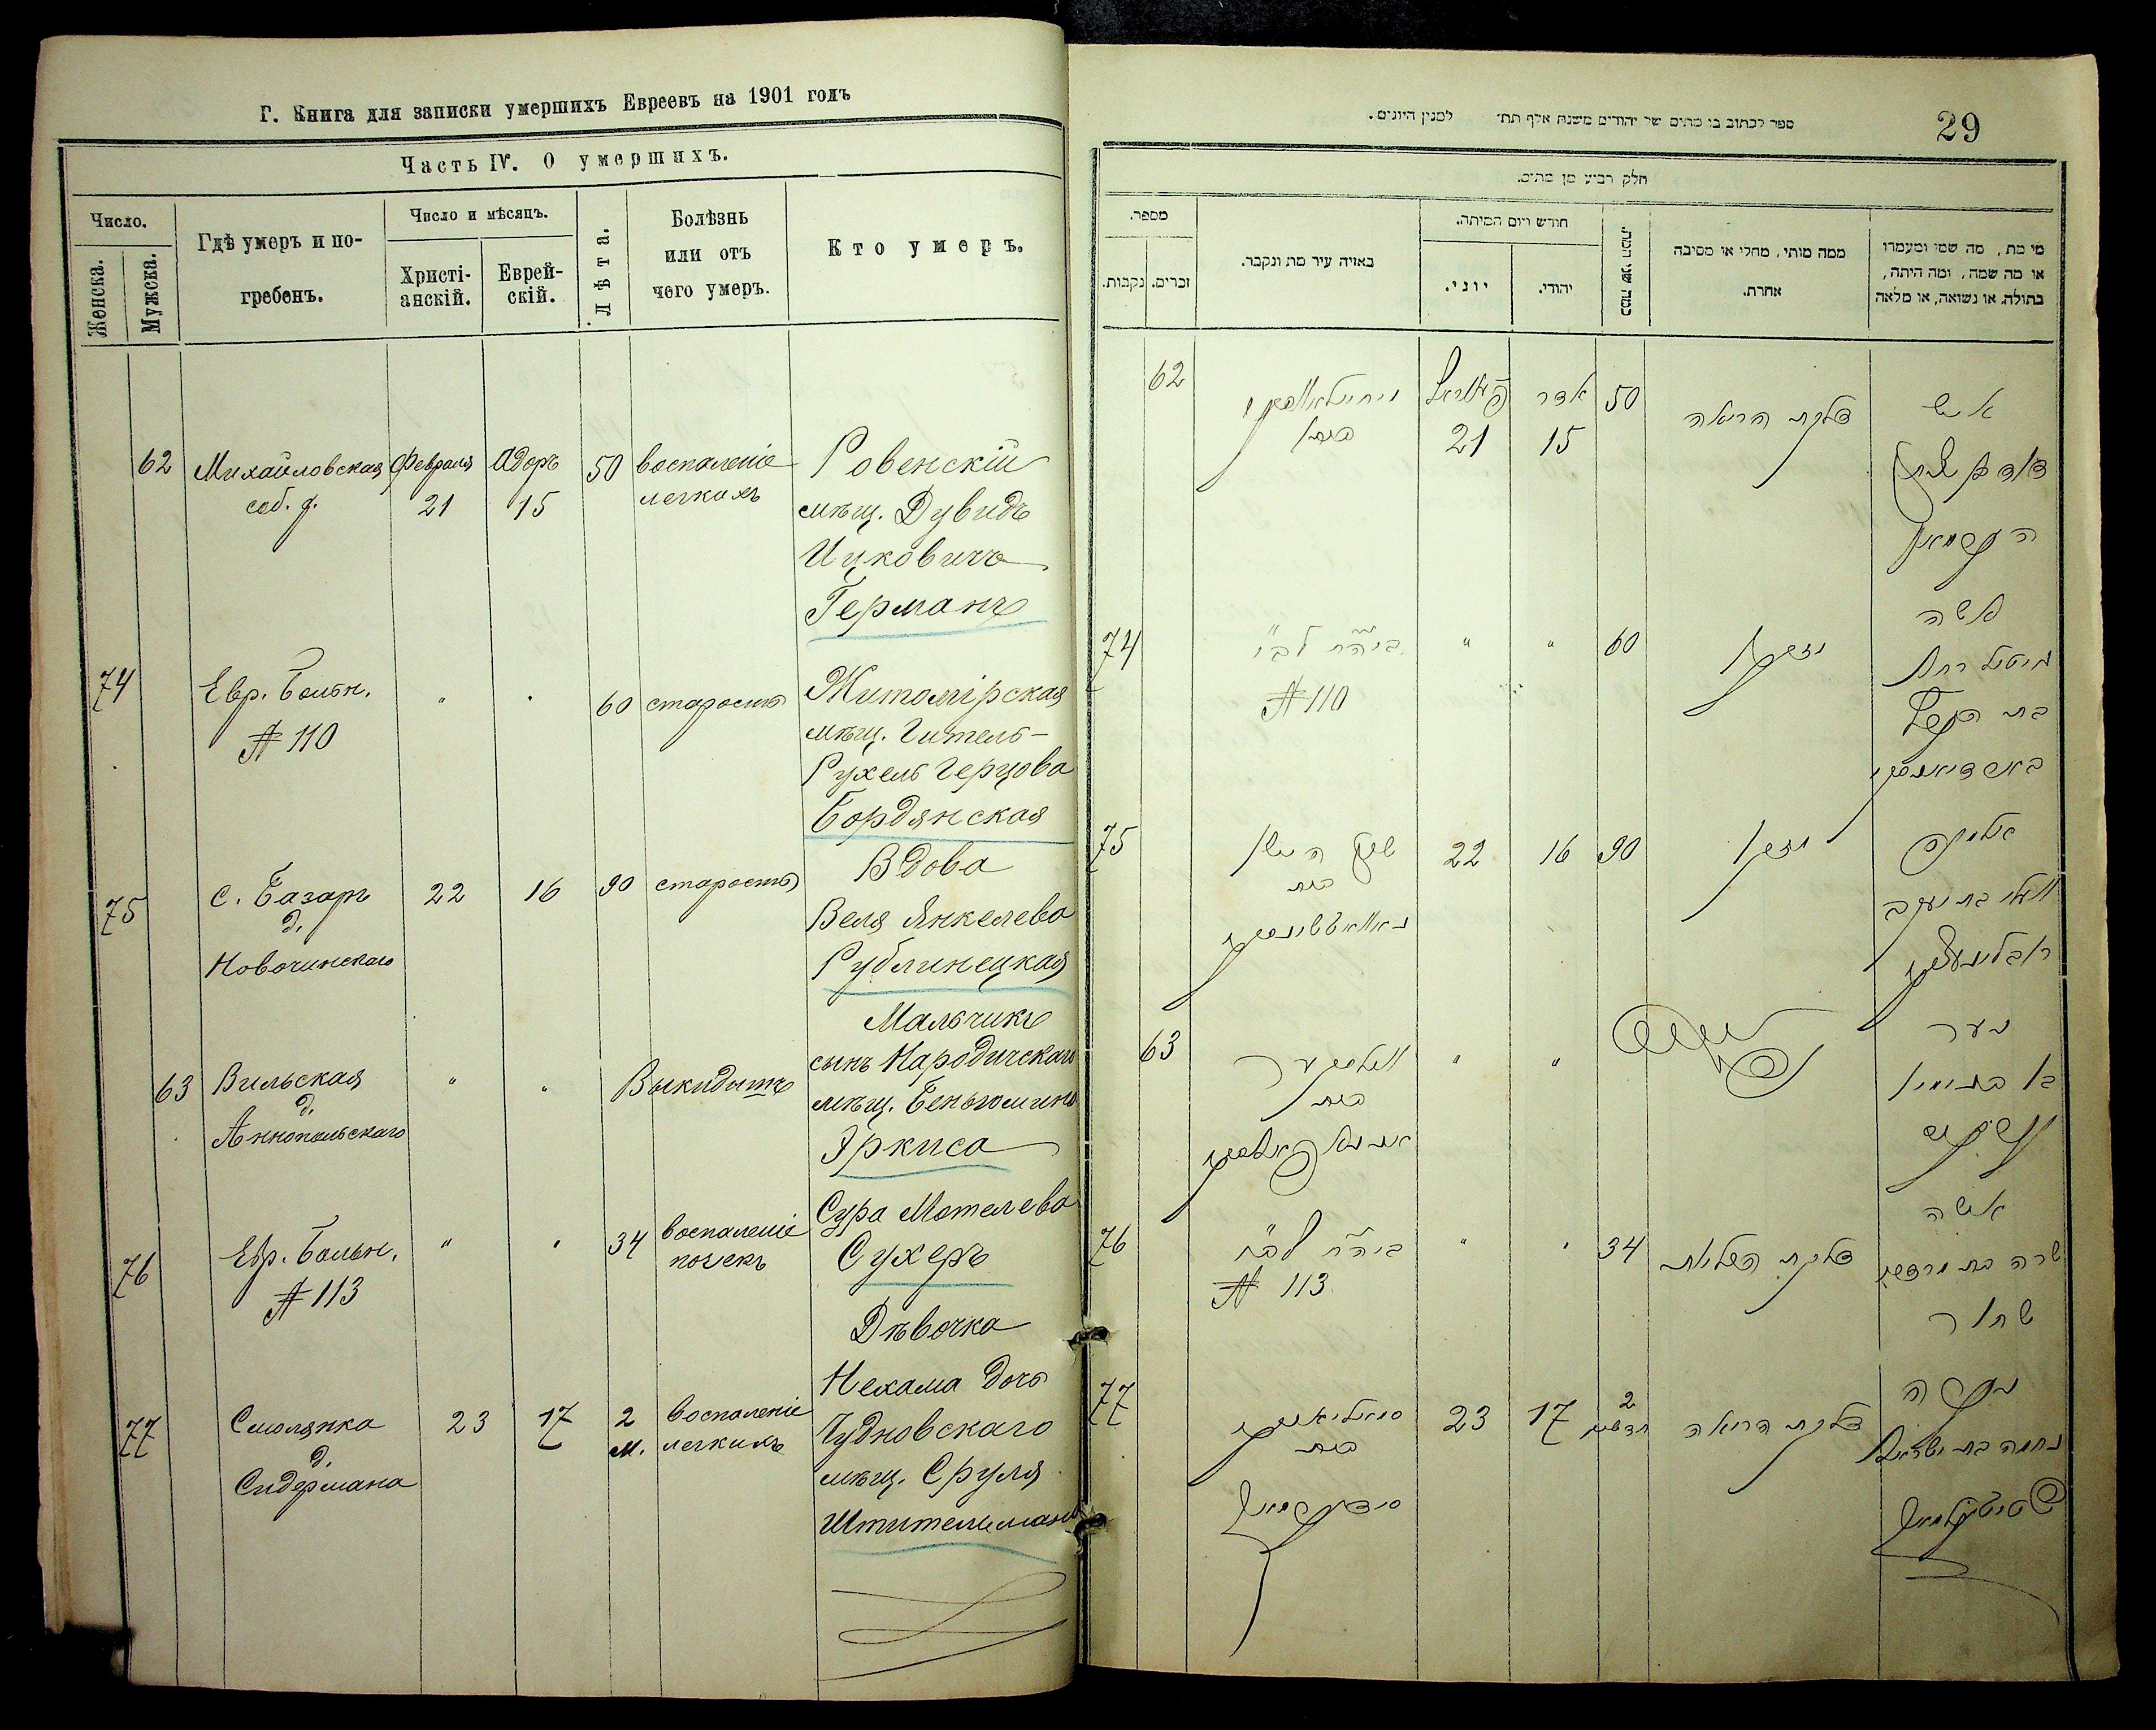 Г. Книга для записки умершихъ Евреевъ на 1901 годъ
Часть IV. О умершихъ.
Число.
Женска.
Мужска.
Гдѣ умеръ и по-
гребенъ.
Число и мѣсяцъ.
Христі-
анскій.
Еврей-
скій.
Лѣта.
Болѣзнь
или отъ
чего умеръ.
Кто умеръ.
62
Михайловская
соб. д.
Февраля
21
Адоръ
15
50
воспаленіе
легкихъ
Ровенскій
мѣщ. Дувидъ
Ицковичъ
Германъ
74
Евр. Больн.
№ 110
"
"
60
старость
Житомірская
мѣщ. Гитель-
Рухель Герцова
Бордянская
75
С. Базаръ
д.
Новочинскаго
22
16
90
старость
Вдова
Веля Янкелева
Рублинецкая
63
Вильская
д.
Аннопольскаго
"
"
Выкидышъ
Мальчикъ
сынъ Народичскаго
мѣщ. Беньюмина
Эркиса
76
Евр. Больн.
№ 113
"
"
34
воспаленіе
почекъ
Сура Мотелева
Сухеръ
77
Смолянка
д.
Сидермана
23
17
2
м.
воспаленіе
легкихъ
Дѣвочка
Нехама дочь
Чудновскаго
мѣщ. Сруля
Штительмана
29
ספר לכתוב בו מתים של יהודים משנת אלף תת׳ למנין היונים.
חלק רביעי מן מתים.
מספר.
נקבות.
זכרים.
באיזה עיר מת ונקבר.
חודש ויום המיתה.
יוני.
יהודי.
כמה שני המת.
ממה מותו, מחלי או מסיבה
אחרת.
מי מת, מה שמו ומעמדו
או מה שמה, ומה היתה,
בתולה או נשואה, או מלאה
62
21
אדר
15
50
דלקת הריאה
איש
74
№ 110
"
"
60
זקן
אשה
גיטל רחל
בת הערץ
75
בית
22
16
90
זקן
אלמנה
וועליא בת יעקב
63
בית
"
"
נער
בן בנימין
76
№ 113
"
"
34
דלקת הכליות
אשה
שרה בת מרדכי
סוחר
77
בית
23
17
2
חדשים
דלקת הריאה
נערה
נחמה בת ישראל